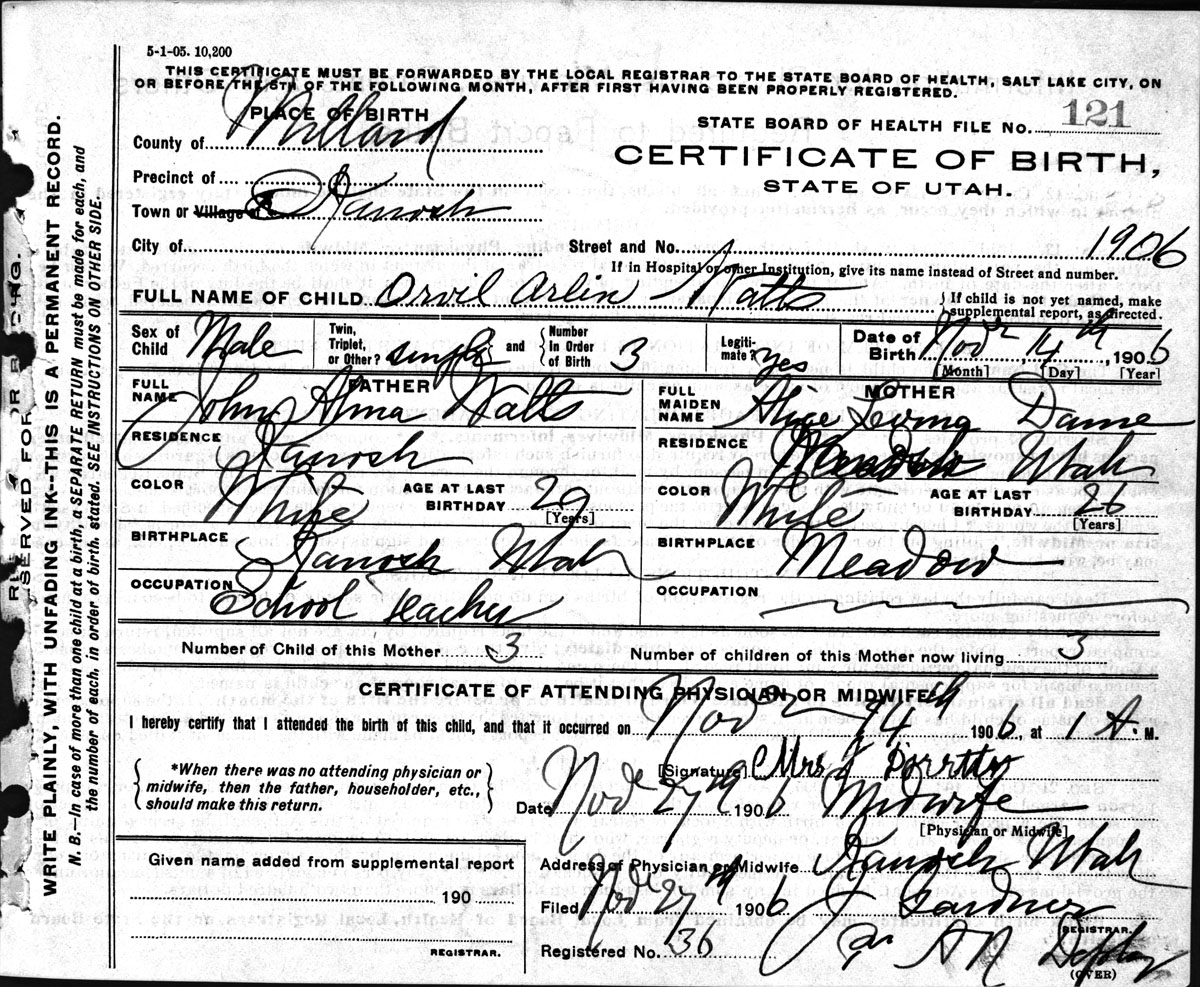 5-1-05. 10,200
THIS CERTIFICATE MUST BE FORWARDED BY THE LOCAL REGISTRAR TO THE STATE BOARD OF HEALTH, SALT LAKE CITY, ON
OR BEFORE THE 5TH OF THE FOLLOWING MONTH, AFTER FIRST HAVING BEEN PROPERLY REGISTERED.
PLACE OF BIRTH
STATE BOARD OF HEALTH FILE NO. 121
County of Millard
CERTIFICATE OF BIRTH,
STATE OF UTAH.
Precinct of
Town or Village of Kanosh
City of Street and No. 1906
If in Hospital or other Institution, give its name instead of Street and number.
FULL NAME OF CHILD Orvil Arlin Watts
If child is not yet named, make supplemental report, as directed.
Sex of Child Male Twin, Triplet, or Other? single and Number In Order of Birth 3 Legitimate? yes Date of Birth Nov 14th, 1906
[Month] [Day] [Year]
FATHER
FULL NAME John Alma Watts
RESIDENCE Kanosh
COLOR White AGE AT LAST BIRTHDAY 29 [Years]
BIRTHPLACE Kanosh Utah
OCCUPATION School teacher
MOTHER
FULL MAIDEN NAME Dame
RESIDENCE Utah
COLOR White AGE AT LAST BIRTHDAY 26 [Years]
BIRTHPLACE Meadow
OCCUPATION
Number of Child of this Mother 3 Number of children of this Mother now living 3
CERTIFICATE OF ATTENDING PHYSICIAN OR MIDWIFE
I hereby certify that I attended the birth of this child, and that it occurred on Nov 14th 1906 at 1 A. M.
*When there was no attending physician or
midwife, then the father, householder, etc.,
should make this return.
[Signature] Mrs
Date Nov 27th 1906 Midwife
[Physician or Midwife]
Given name added from supplemental report
190
REGISTRAR.
Address of Physician or Midwife Kanosh Utah
Filed Nov 27th 1906 J Gardner
REGISTRAR.
Registered No. 36
(OVER)
RESERVED FOR
WRITE PLAINLY, WITH UNFADING INK--THIS IS A PERMANENT RECORD.
N. B.—In case of more than one child at a birth, a SEPARATE RETURN must be made for each, and
the number of each, in order of birth, stated. SEE INSTRUCTIONS ON OTHER SIDE.